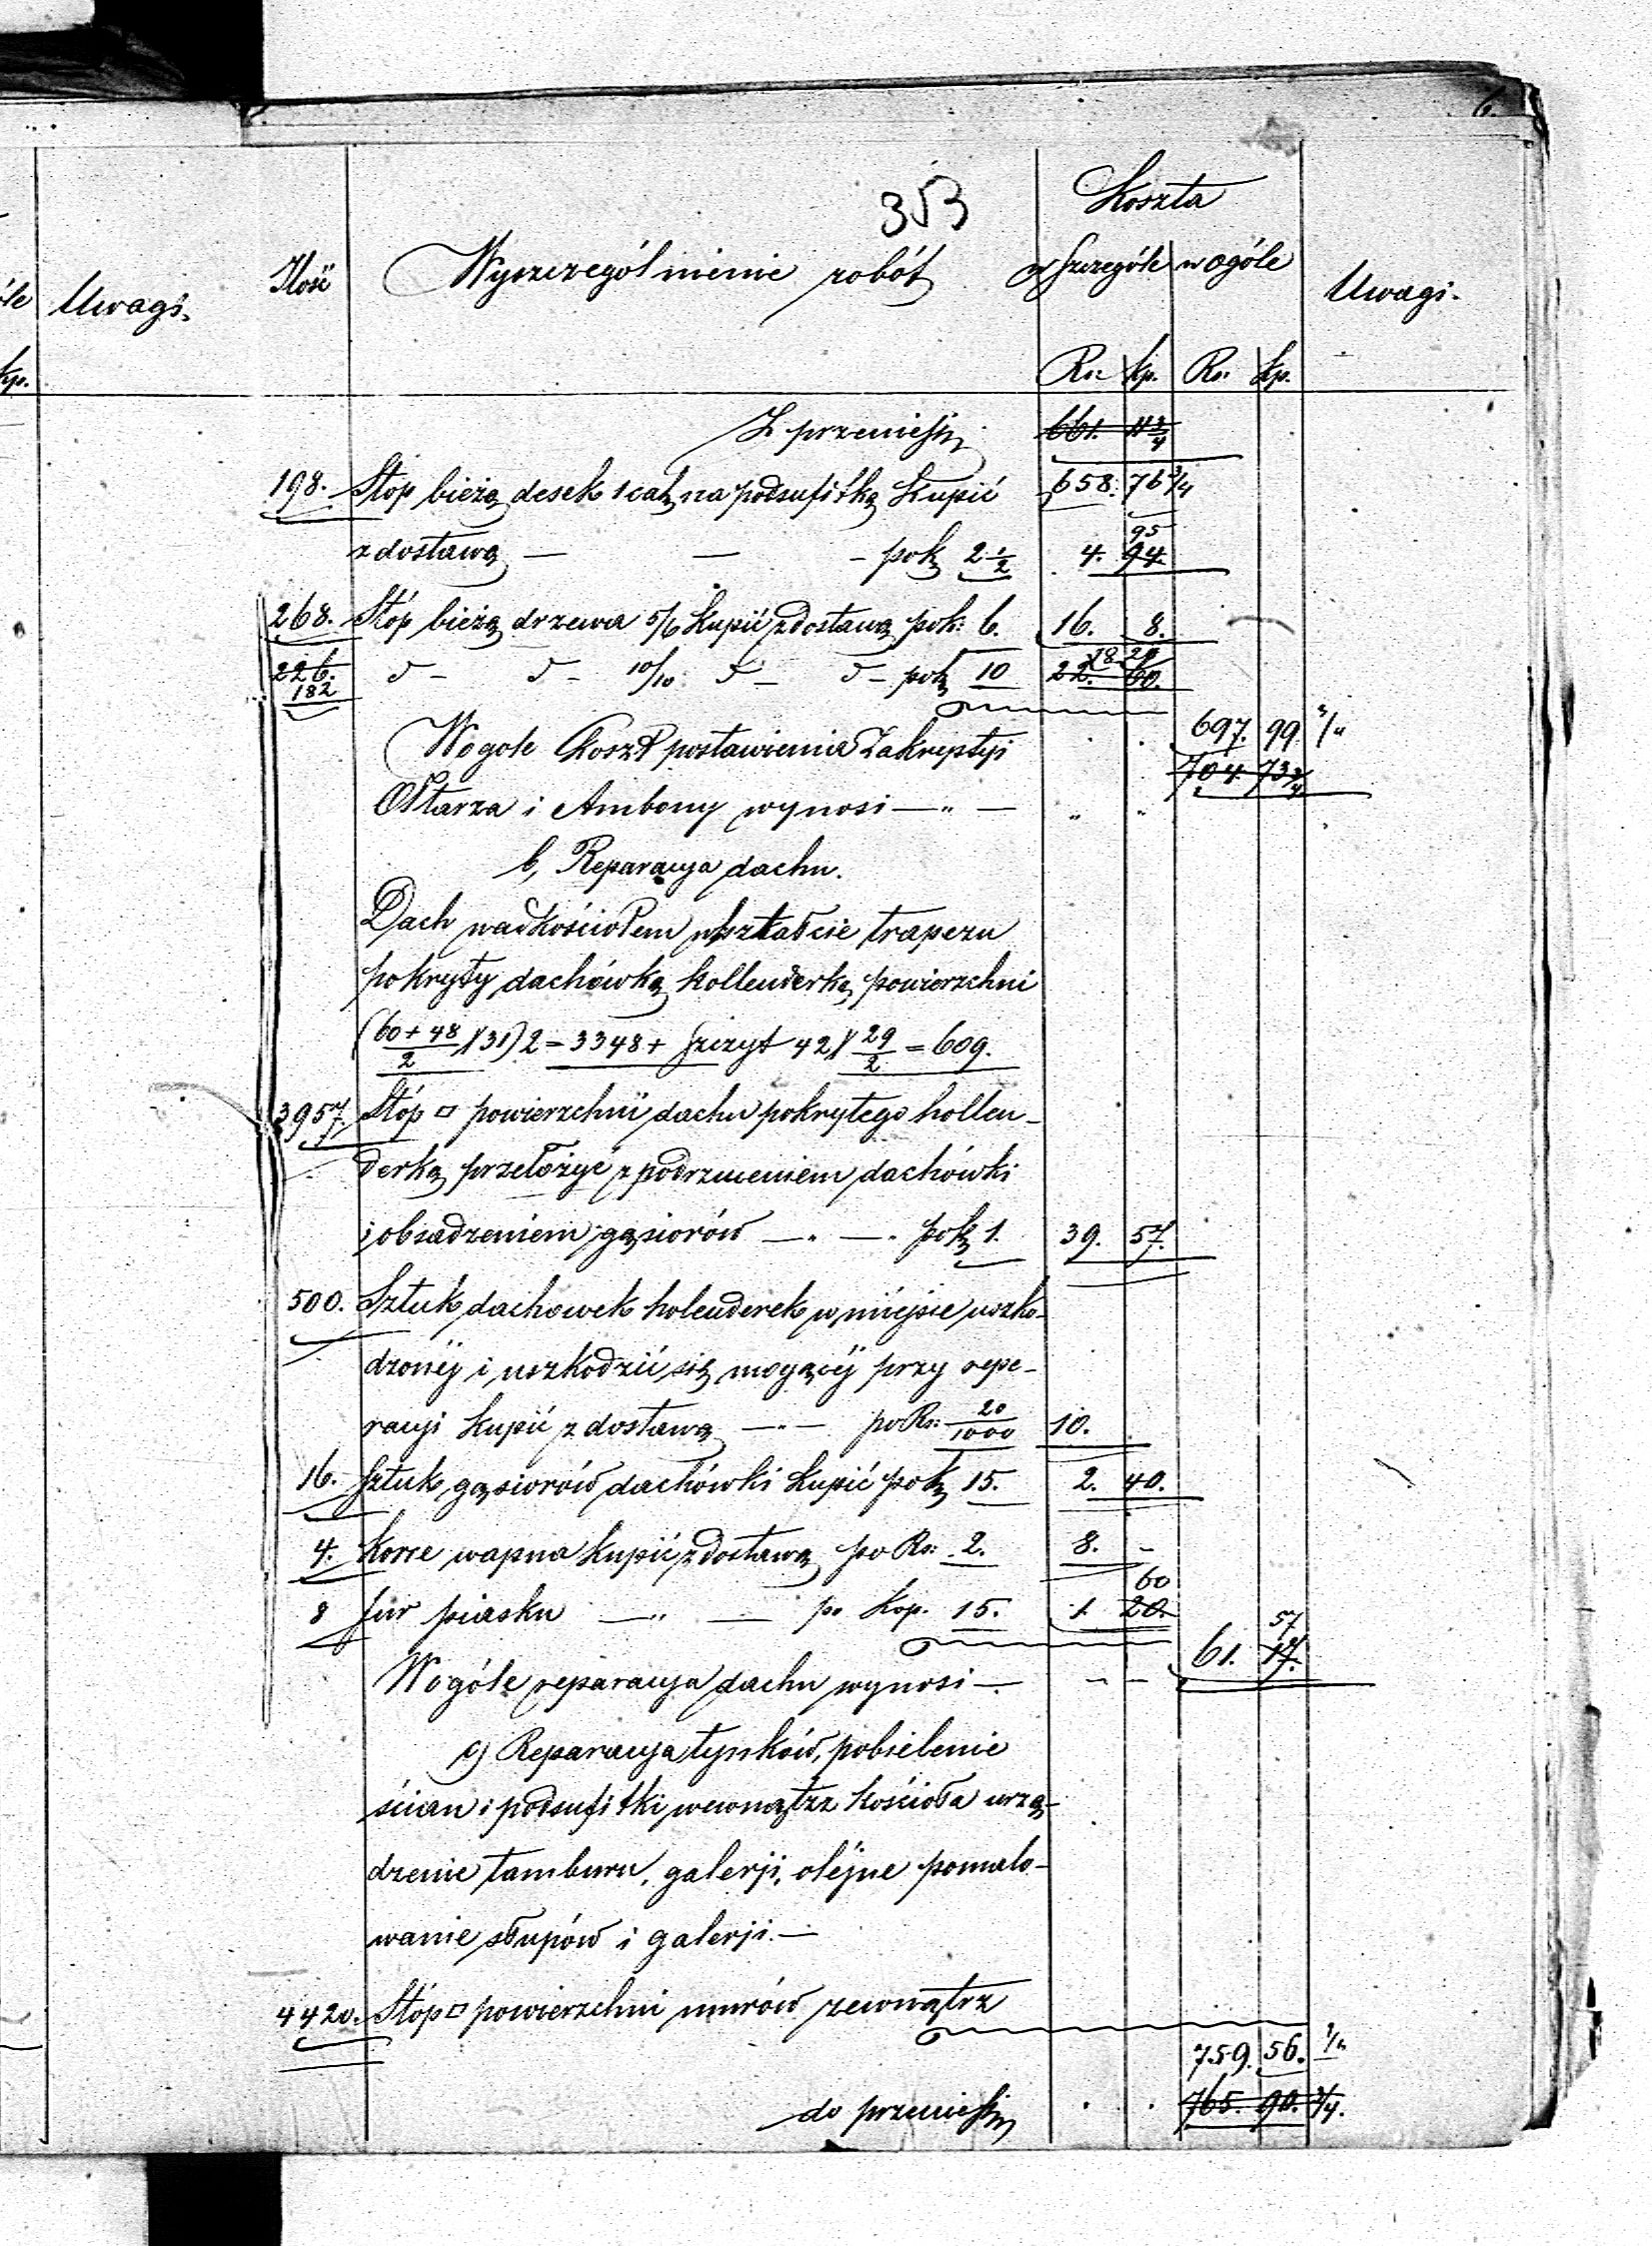 6.
353
Koszta
Ilość Wyszczególnienie robót w szczególe w ogóle Uwagi.
Uwagi.
Rs: kp. Rs. kp.
kp.
Z przeniesn 661. 11 3/4
198. Stóp bieżą desek 1 cal na podsufitkę kupić 658. 76 3/4
z dostawą — — – po k 2 1/2 4. 94. 95
268. Stóp bieżą drzewa 5/6 kupić z dostawą po k: 6. 16. 8.
226. 182 d – d – 10/10 d – d – po k 10 22. 60. 18. 20
Wogole koszt postawienia Zakrystyi 697. 99 3/4
704. 73 3/4
Ołtarza i Ambony wynosi — „ —
b, Reparacya dachu.
Dach nad kościołem w kształcie trapezu
pokryty dachówką hollenderką powierzchni
(60+48/2)(31)2=3348+ szczyt 42)(29/2=609.
3957. Stóp □ powierzchni dachu pokrytego hollen-
derką przełożyć z podrzuceniem dachówki
i obsadzeniem gąsiorów — . — . po k 1. 39. 57.
500. Sztuk dachowek holenderek w miejsce uszko-
dzonéj i uszkodzić się mogącéj przy repe-
racyi kupić z dostawą — „ — po Rs: 20/1000 10.
16. Sztuk gąsiorów dachówki kupić po k 15. 2. 40.
4. Korce wapna kupić z dostawą po Rs: 2. 8. –
8 fur piasku — „ — po kop. 15. 1. 20. 60
61. 17. 57
Wogóle reparacya dachu wynosi —.
c) Reparacya tynków, pobielenie
ścian i podsufitki wewnątrz kościoła urzą-
dzenie tamburu, galerji, oléjne pomalo-
wanie słupów i galerji. —
4420. Stóp □ powierzchni murów zewnątrz
759. 56. 3/4
do przeniesn 765. 90. 3/4.